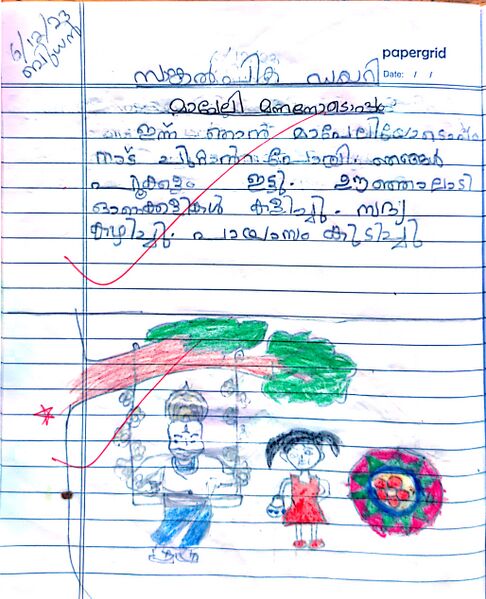 6/12/23
ബുധൻ
papergrid
Date: / /
സങ്കൽപിക ഡയറി
മാവേലി മന്നനോടൊപ്പം
ഇന്ന് ഞാൻ മാവേലിയോടൊപ്പം
നാട് ചുറ്റാൻ പോയി. ഞങ്ങൾ
പൂക്കളം ഇട്ടു. ഊഞ്ഞാലാടി
ഓണക്കളികൾ കളിച്ചു. സദ്യ
കഴിച്ചു. പായസം കുടിച്ചു